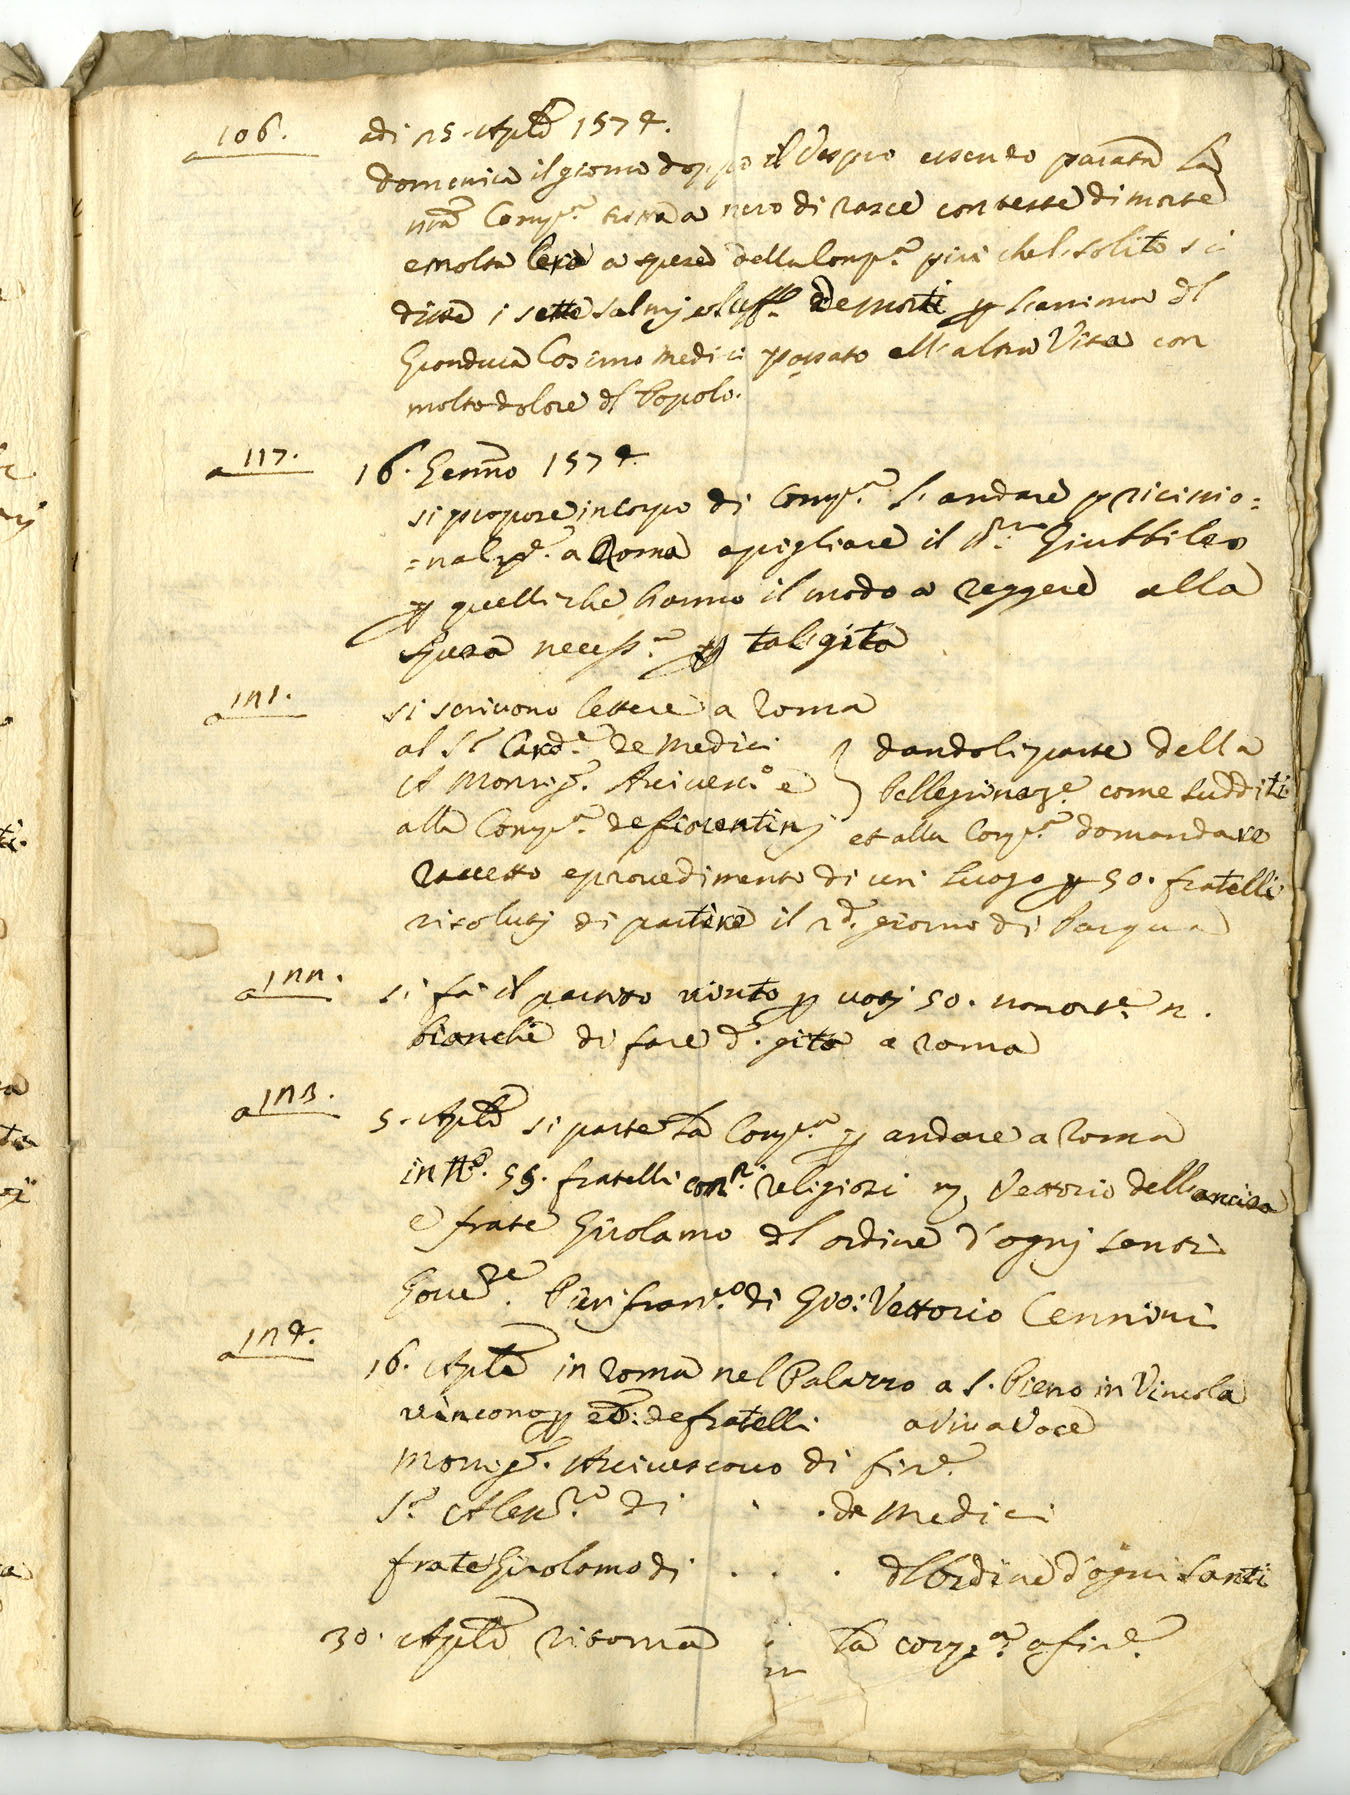 a 106. adi 25. Aple 1574.
domenica il giorno doppo il Vespro essendo parata la
nra Compa. tutta a nero di rasce con teste di morte
e molta cera a spese della Compa. più chel solito si
disse i sette salmj e luffo. de morti p l'anima dl
Granduca Cosimo Medici passato all'altra Vita con
molto dolore dl Popolo.
a 117. 16. Genno 1574
si propose in corpo di Compa. l'andare p
=nalme. a Roma a pigliare il Smo. Giubbileo
p quelli che hanno il modo a reggere alla
spesa necessa. p tal gita
a 121. si scrivono lettere a Roma
al Sr. Carde. de Medici } dandoli parte della
A Monsigr. Arcivesco. e } Pellegrinage. come sudditi
alla Compa. de fiorentinj et alla Compa. domandare
ricetto e provedimento di un luogo p 50. fratelli
risolutj di partire il 2do. giorno di Pasqua
a 122. si fa il partito vinto p votj 50. nonoste. 2.
bianche di fare da. gita a Roma
a 123. 5. Aple si parte la Compa. p andare a Roma
in No. 55. fratelli con 2. religiosi Vettorio dell'ancisa
e frate Girolamo dl ordine d'ognj santi
Goverre. Pierifranco. di Gio: Vettorio Cennini
a 124. 16. Aple in Roma nel Palazzo a S. Piero in Vincola
vincono p de fratelli a viva voce
Monsigr. Arcivescovo di fire.
Sr. Alessro. di . . de Medici
frate Girolamo di . . . dl Ordine d'ogni Santi
30. Aple ritorna la compa. a fire.